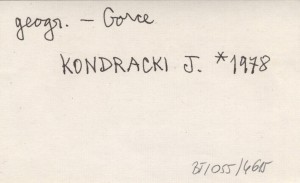 geogr. – Gorce
KONDRACKI J. *1978
BT/055/4615